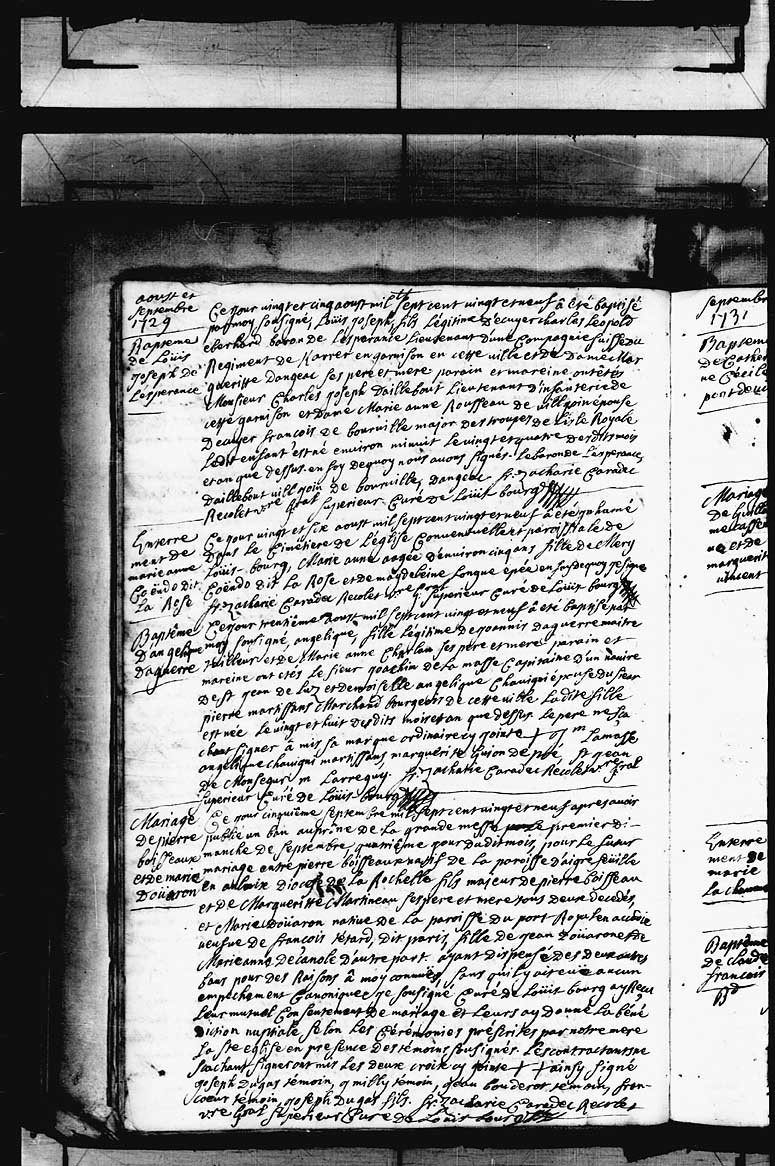 aoust et
septembre
1729
Bapteme
de Loüis
Joseph de
Lesperance
Ce jour vingt et cinq aoust mil sept cent vingt et neuf à été baptisé
par moy, sousigné, Loüis Joseph, fils légitime d'ecuyer charles Leopold
eberhard baron de Lésperance Lieutenant d'une Compagnie suisse du
Regiment de Karrer en garnison en cette ville et de Dame Mar
gueritte Dangeac ses pere et mere parain et mareine ont étés
Monsieur Charles Joseph Daillebout Lieutenant d'infanterie de
cette garnison et Dame Marie anne Rousseau de villejoin épouse
Decuyer francois de bourville major des troupes de L'isle Royale
Ledit enfant est né environ minuit le vingt et quatre desdits mois
et an que dessus. en foy de quoy nous avons signés. le baron de L'esperance,
Daillebout villejoin de bourville, Dangeac fr. Zacharie Caradec
Recolet vre gnal superieur Curé de Loüisbourg
Enterre
ment de
marie anne
Coëndo dit
La Rose
Ce jour vingt et six aoust mil sept cent vingt et neuf à été inhumé
Dans Le Cimetiere de L'église Conventuelle et paroissiale de
Loüis-bourg, Marie anne aagée d'environ cinq ans fille de Mery
Coëndo dit La Rose et de magdeleine Longue epée en foy de quoy je signe
fr. Zacharie Caradec Recolet vre gnal superieur Curé de Loüis bourg
Baptême
D'angelique
Daguerre
Ce jour trentième aoust mil sept cent vingt et neuf à été baptisé par
moy sousigné, angelique, fille légitime de joannis Daguerre maitre
tailleur et de Marie anne Charlan ses pere et mere parain et
mareine ont étés Le sieur joachin de La masse Capitaine d'un navire
de St jean de Luz et demoiselle angelique Chavigni épouse du sieur
pierre martissans Marchand bourgeois de cette ville La dite fille
est née le vingt et huit desdits mois et an que dessus. Le pere ne sça
chant signer à mis sa marque ordinaire cy jointe + Lamasse
angelique chavigni martissans marguerite Guion St Jean
de Monsegur m Larreguy. fr. Zacharie Caradec Recolet vre gnal
superieur Curé de Loüis-bourg
Mariage
de pierre
boisseaux
et de marie
Doüaron
Ce jour cinquième septembre mil sept cent vingt et neuf apres avoir
publié un ban au prône de La grande messe premier di-
manche de septembre quatrième jour dudit mois, pour Le futur
mariage entre pierre boisseaux natif de La paroisse d'aigrefeüille
en aulnix diocese de La Rochelle fils majeur de pierre boisseau
et de Margueritte Martineau ses pere et mere tous deux decedés,
et Marie Doüaron native de La paroisse du port Royal en accadie
veufve de francois tétard, dit paris, fille de jean Doüaron et de
Marie anne de canole d'autre part. ayant dispensé des deux autres
bans pour des Raisons à moy connües, sans qu'il y ait eüe aucun
empêchement Canonique, je sousigné Curé de Loüisbourg ay Reçu
Leur mutuel Consentement de mariage et Leurs ay donné La béné
diction nuptiale selon Les Cérémonies préscrites par notre mere
La ste eglise en presence des témoins sousignés. Les contractants ne
sçachant signer ont mis Les deux croix cy jointe + + ainsy signé
joseph Dugas témoin, milly témoin, jean bouderot témoin, fran-
coeur témoin, joseph Dugas fils. fr. Zacharie Caradec Recolet
vre gnal superieur Curé de Loüisbourg
septembre
1731
Baptem
de Cather
ne Cecile
Mariag
de Guill
et de
marguerit
vincent
Enterre
ment de
marie
Baptême
de Claude
francois